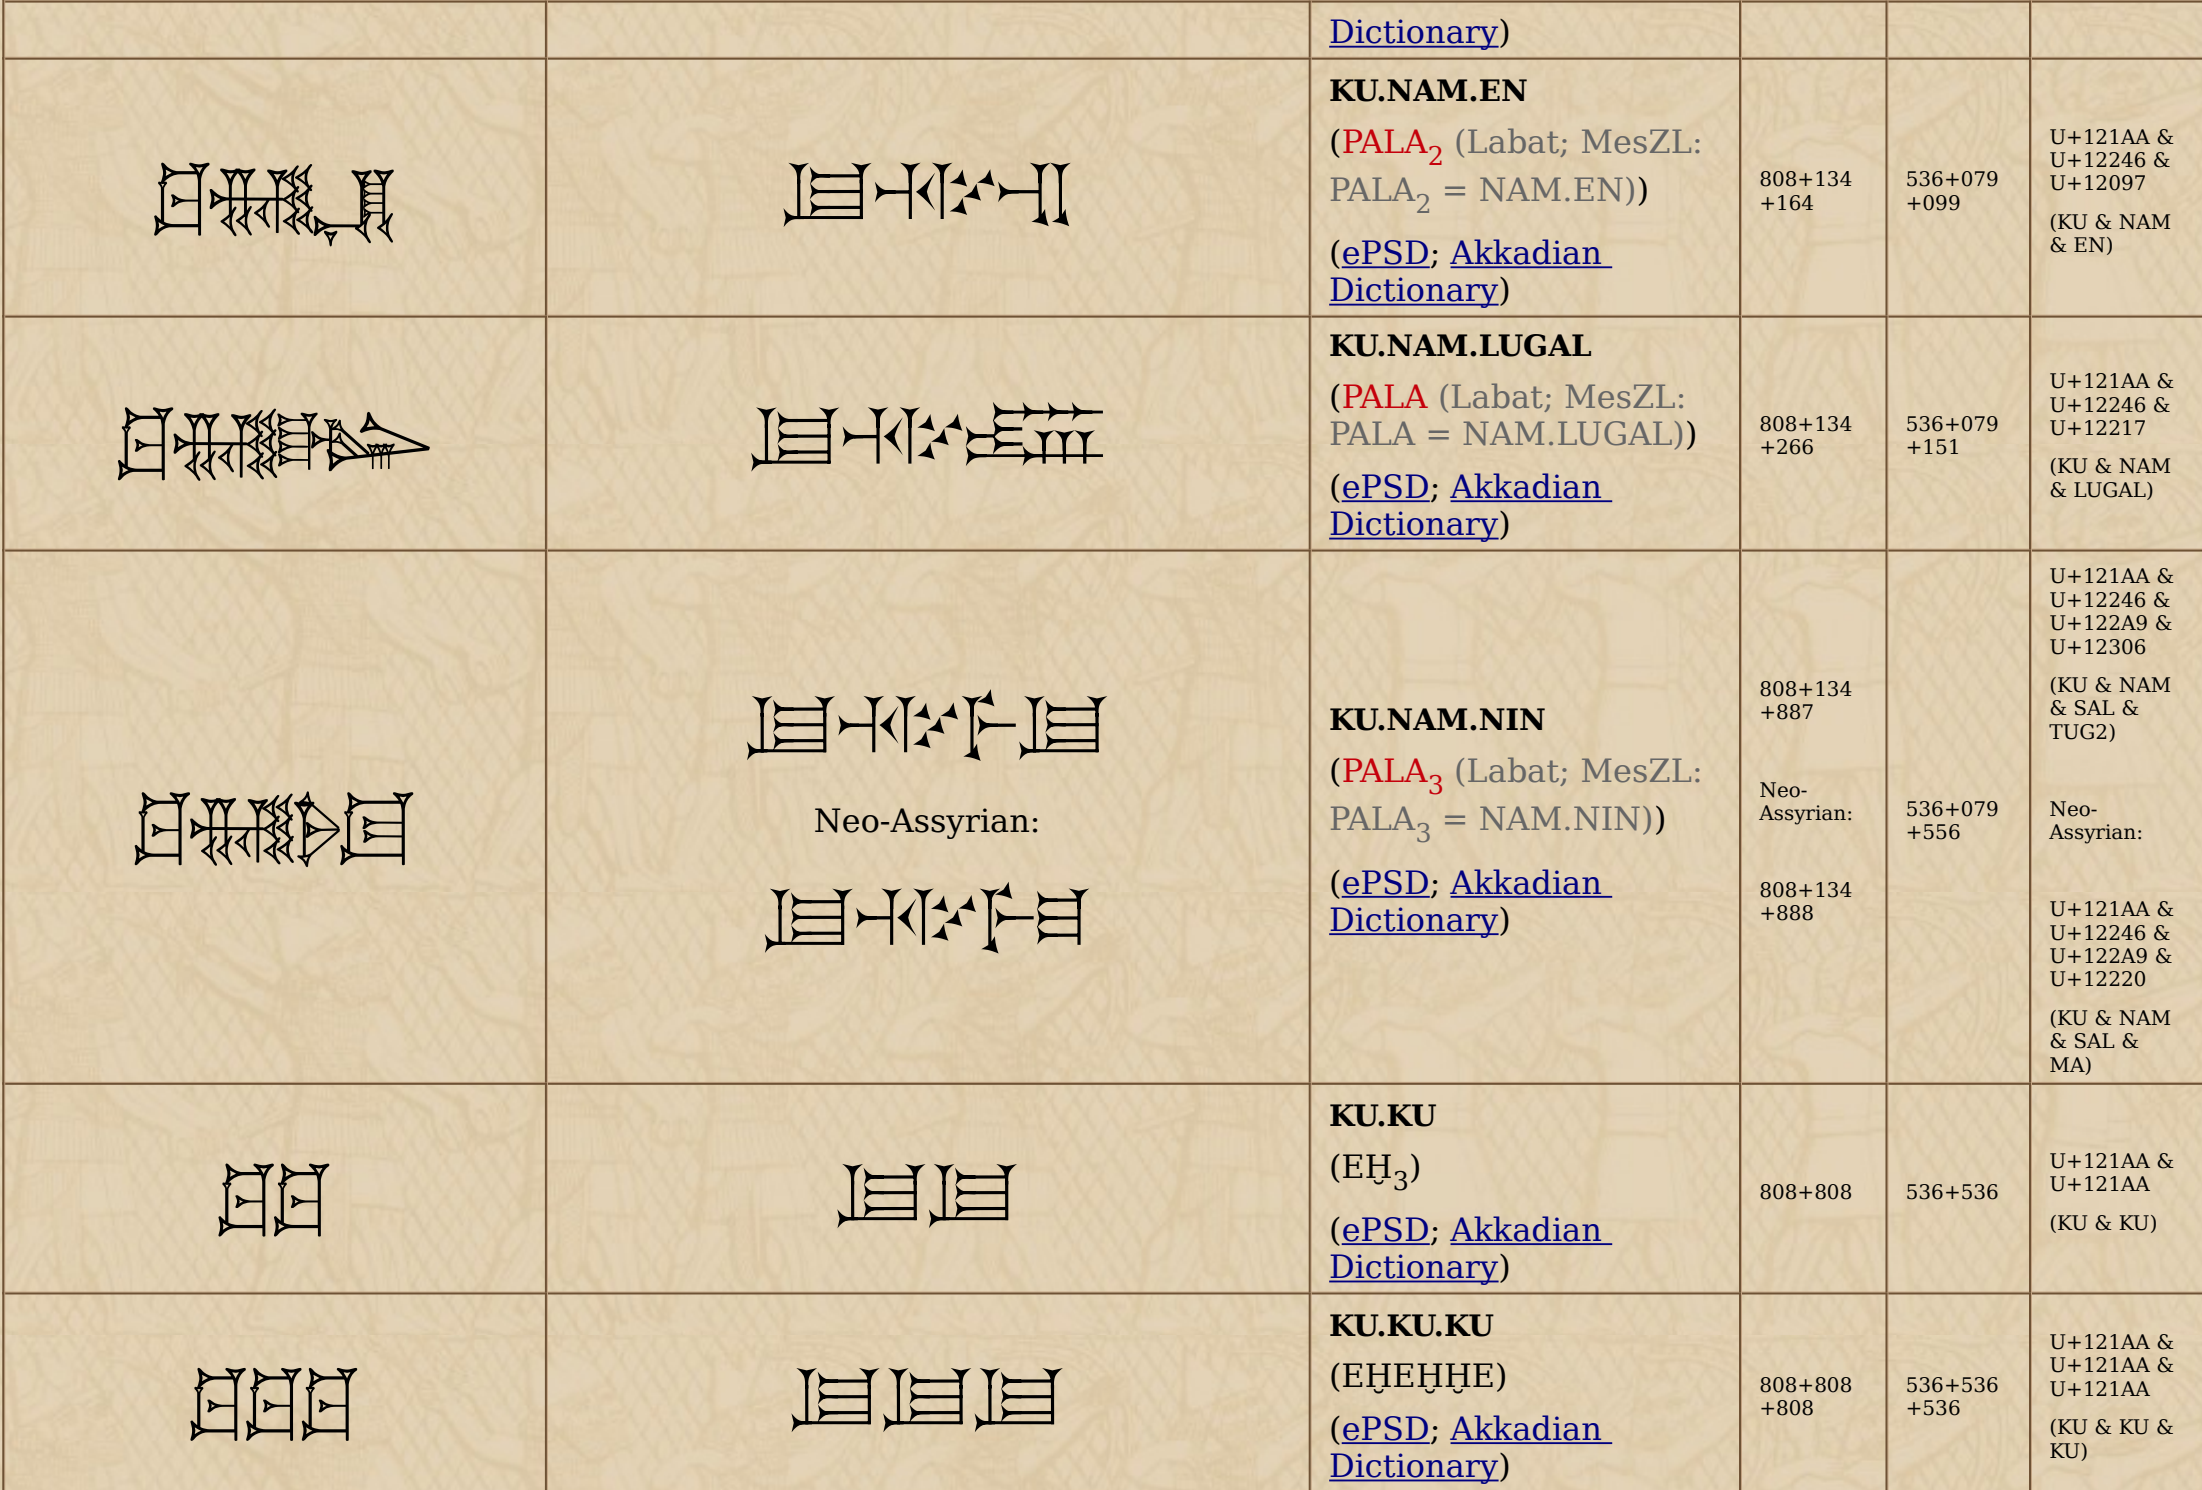 Dictionary)
𒆪𒉆𒂗
𒆪𒉆𒂗
KU.NAM.EN
(PALA₂ (Labat; MesZL:
PALA₂ = NAM.EN))
(ePSD; Akkadian
Dictionary)
808+134
+164
536+079
+099
U+121AA &
U+12246 &
U+12097
(KU & NAM
& EN)
𒆪𒉆𒈗
𒆪𒉆𒈗
KU.NAM.LUGAL
(PALA (Labat; MesZL:
PALA = NAM.LUGAL))
(ePSD; Akkadian
Dictionary)
808+134
+266
536+079
+151
U+121AA &
U+12246 &
U+12217
(KU & NAM
& LUGAL)
𒆪𒉆𒊩𒌆
𒆪𒉆𒊩𒌆
Neo-Assyrian:
𒆪𒉆𒊩𒈠
KU.NAM.NIN
(PALA₃ (Labat; MesZL:
PALA₃ = NAM.NIN))
(ePSD; Akkadian
Dictionary)
808+134
+887
Neo-
Assyrian:
808+134
+888
536+079
+556
U+121AA &
U+12246 &
U+122A9 &
U+12306
(KU & NAM
& SAL &
TUG2)
Neo-
Assyrian:
U+121AA &
U+12246 &
U+122A9 &
U+12220
(KU & NAM
& SAL &
MA)
𒆪𒆪
𒆪𒆪
KU.KU
(EḪ₃)
(ePSD; Akkadian
Dictionary)
808+808
536+536
U+121AA &
U+121AA
(KU & KU)
𒆪𒆪𒆪
𒆪𒆪𒆪
KU.KU.KU
(EḪEḪḪE)
(ePSD; Akkadian
Dictionary)
808+808
+808
536+536
+536
U+121AA &
U+121AA &
U+121AA
(KU & KU &
KU)